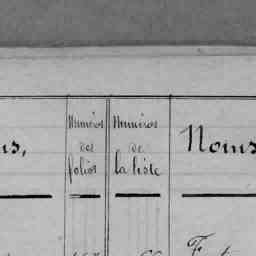 Numéros Numéros
ns, des de Noms
folios la liste